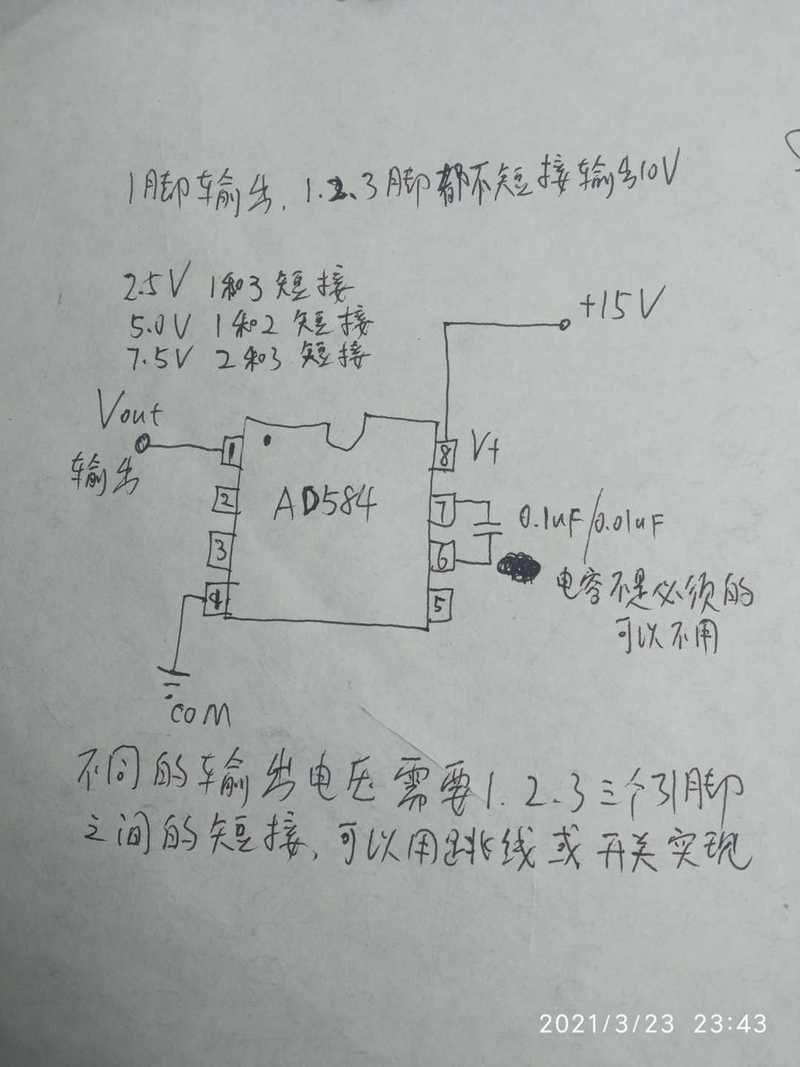 1脚输出，1.2.3脚都不短接输出10V
2.5V 1和3短接
5.0V 1和2 短接
7.5V 2和3 短接
+15V
Vout
输出
1
2
3
4
AD584
8
7
6
5
V+
0.1uF/0.01uF
电容不是必须的
可以不用
COM
不同的输出电压需要1.2.3三个引脚
之间的短接，可以用跳线或开关实现
2021/3/23 23:43